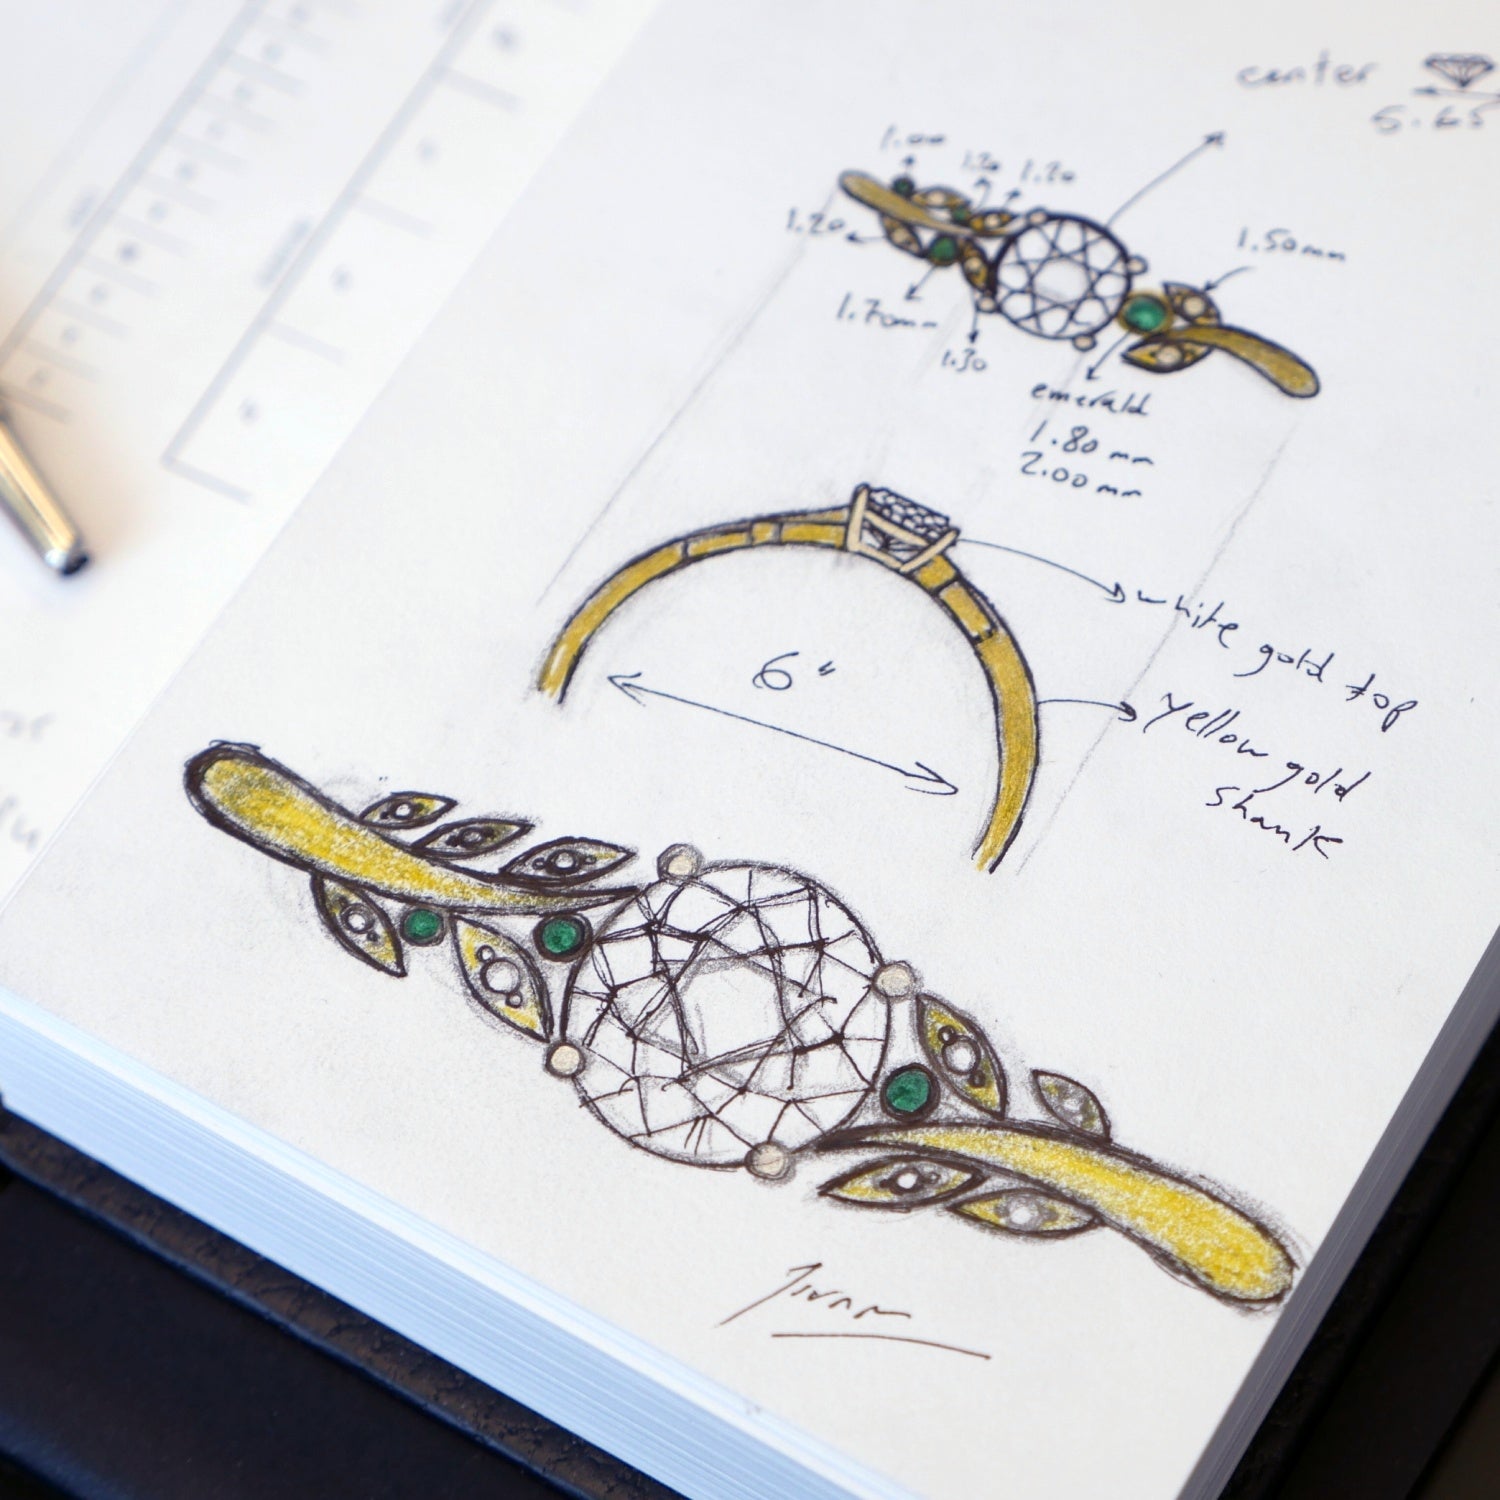 center
5.65
1.00
1.20
1.20
1.20
1.50mm
1.70mm
1.30
emerald
1.80 mm
2.00 mm
6"
white gold top
yellow gold
shank